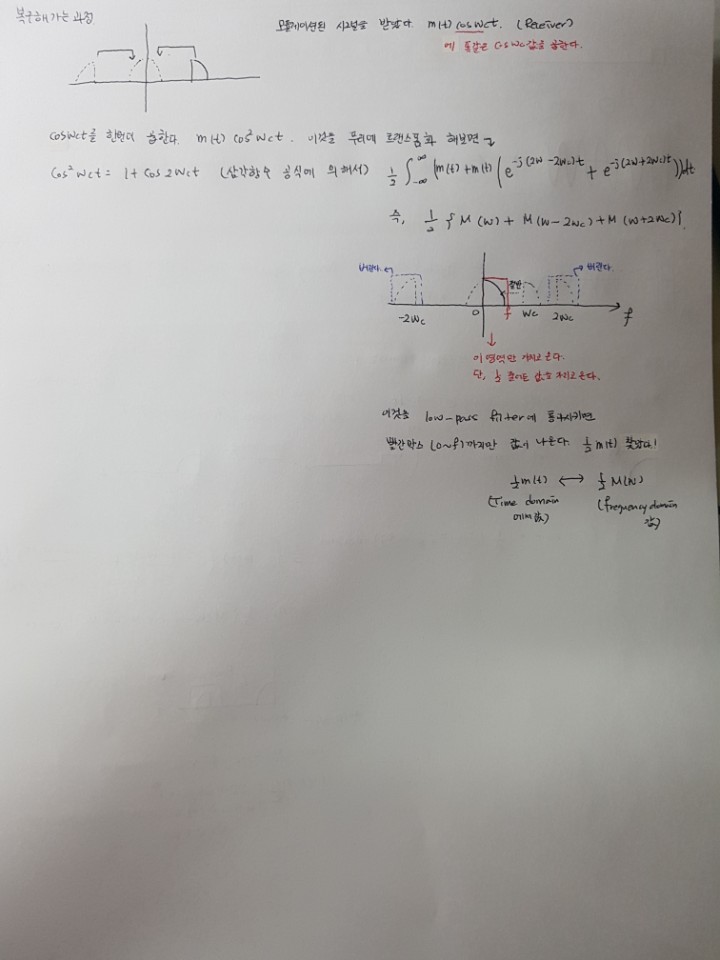 복구해 가는 과정
모듈레이션된 시그널을 받았다. m(t) cos wct. (Receiver)
에 똑같은 cos wc 값을 곱한다.
cos wct를 한번더 곱한다. m(t) cos² wct. 이것을 푸리에 트랜스폼화 해보면
cos² wct = 1 + cos 2wct (삼각함수 공식에 의해서) 1/2 ∫_{-∞}^{∞} (m(t) + m(t) (e^{-j(2w-2wc)t} + e^{-j(2w+2wc)t}))dt
즉, 1/2 { M(w) + M(w-2wc) + M(w+2wc) }
버린다. 절반 버린다.
-2wc 0 f wc 2wc f
이 영역만 가지고 온다.
단, 1/2 줄어든 값을 가지고 온다.
이것을 low-pass filter에 통과시키면
빨간박스 (0~f)까지만 값이 나온다. 1/2 m(t) 찾았다!
1/2 m(t) ↔ 1/2 M(W)
(Time domain (frequency domain
에서 값) 값)